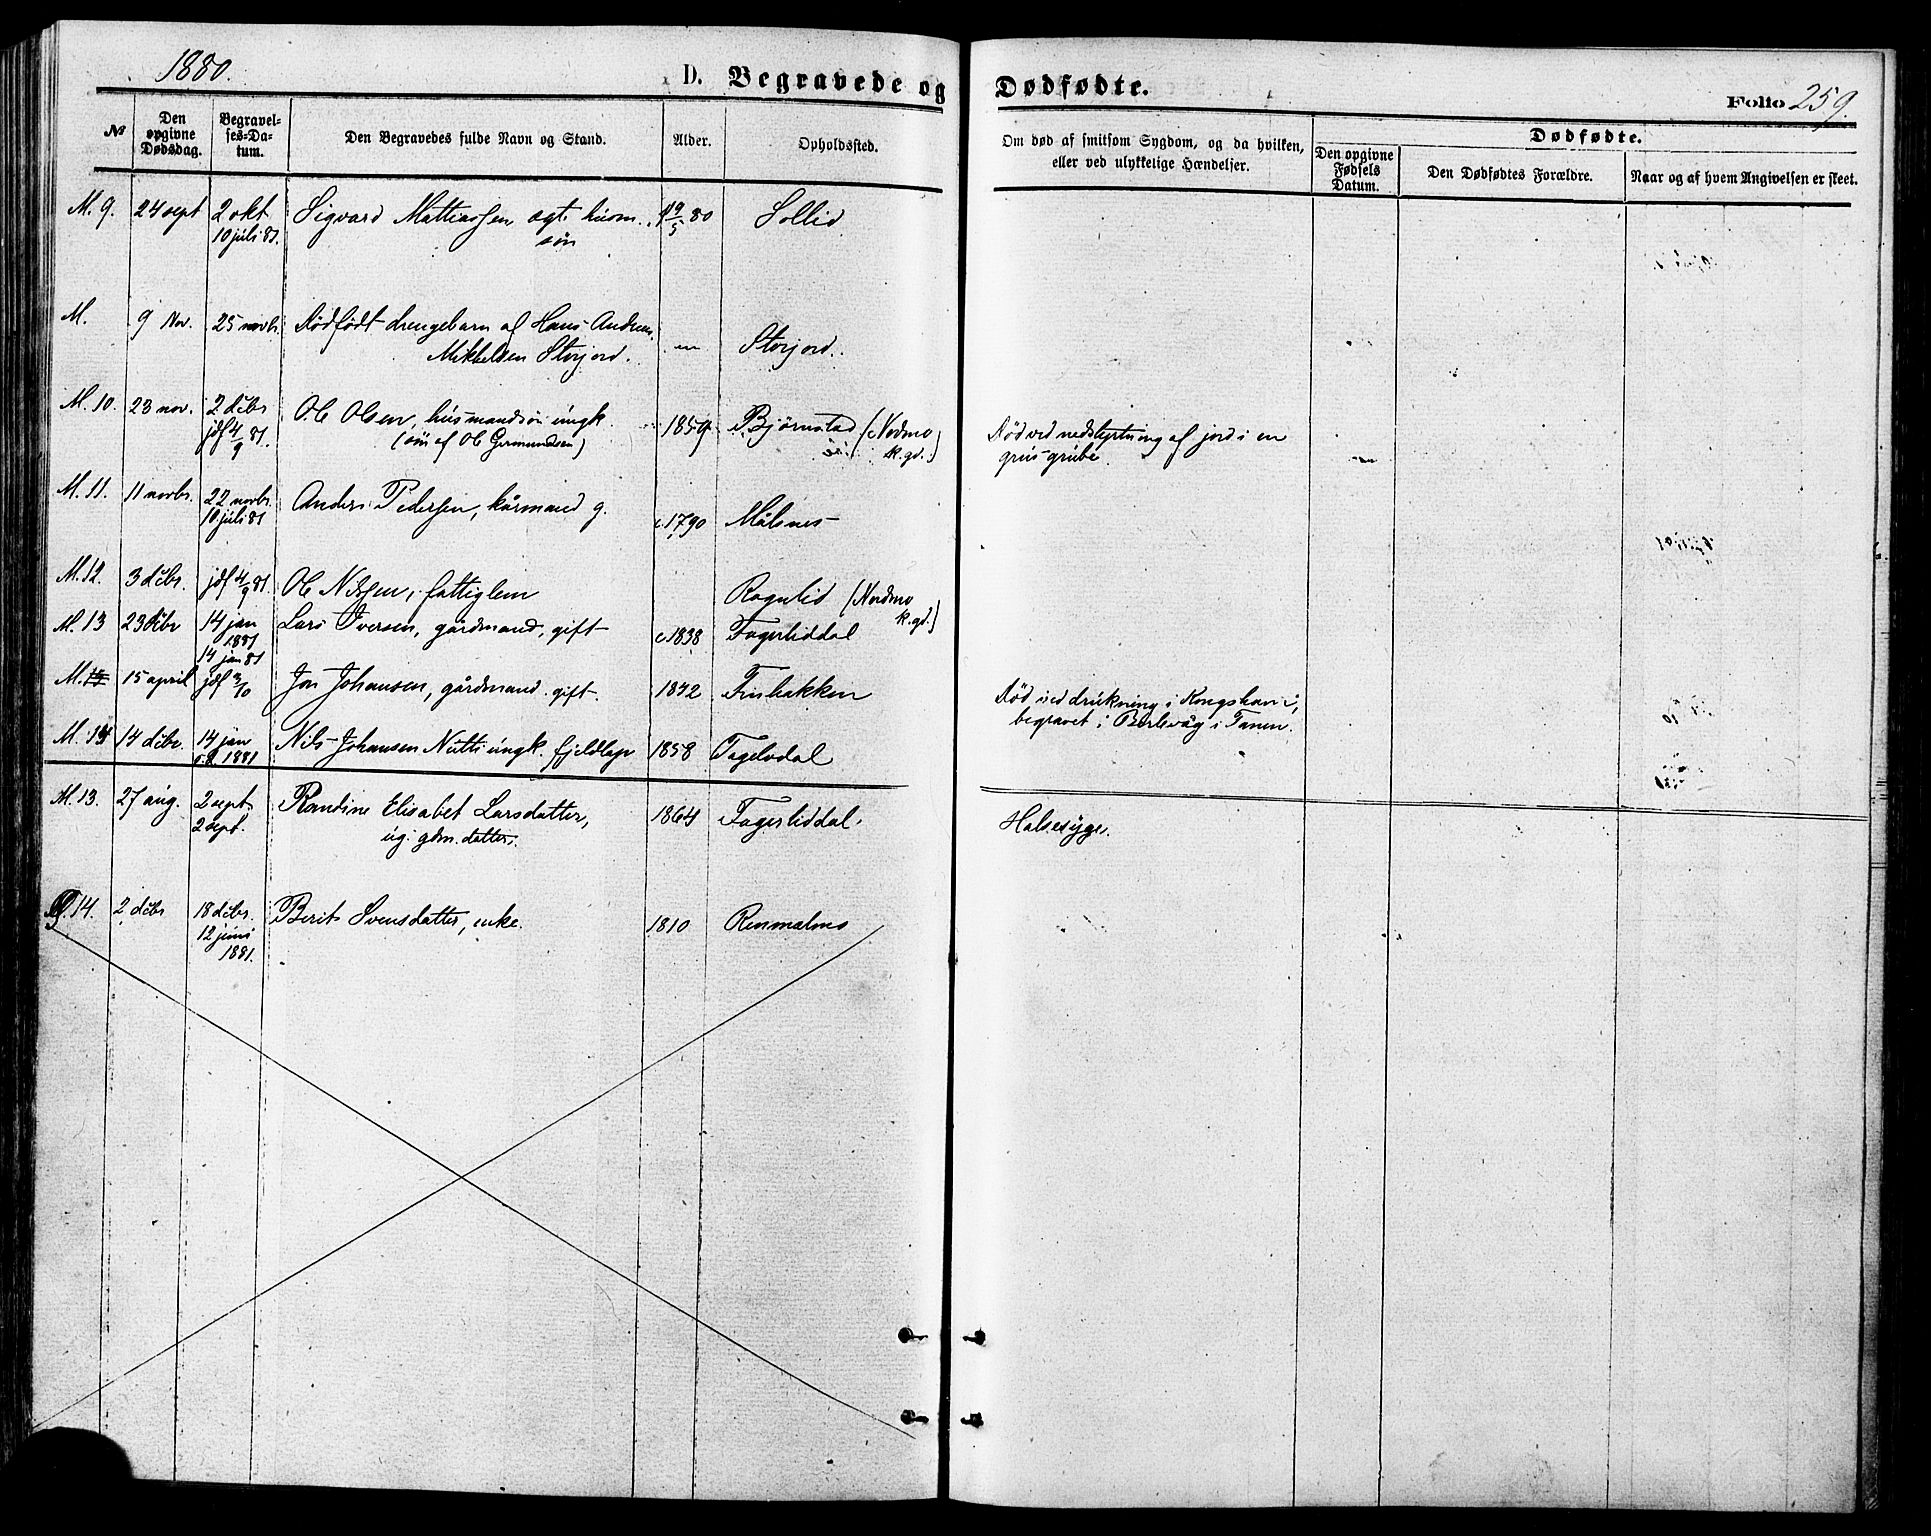 1880.
D. Begravede og Dødfødte.
Folio 259.
№
Den opgivne Dødsdag.
Begravelses=Datum.
Den Begravedes fulde Navn og Stand.
Alder.
Opholdssted.
Om død af smitsom Sygdom, og da hvilken,
eller ved ulykkelige Hændelser.
Dødfødte.
Den opgivne Fødsels Datum.
Den Dødfødtes Forældre.
Naar og af hvem Angivelsen er skeet.
M. 9. 24 sept 2 okt Sigvard Mathiassen ægt. husm. 80 Sollid
10 juli 81. søn
M. 9 Nov. 25 novbr. Dødfødt drengebarn af Hans Andreas
Mikkelsen Storjord. Storjord.
M. 10. 23 nov. 2 dcbr Ole Olsen, husmandssøn ungk. 1859 Bjørnstad (Nordmo
jdf 4/9 81. (søn af Ole Germundsen) k.gd.)
Død ved nedstyrtning af jord i en
grus-grube.
M. 11. 11 novbr. 22 novbr. Anders Pedersen, kårmand g. c. 1790 Målsnes
10 juli 81
M. 12. 3 dcbr. jdf 4/9 81. Ole Nilsen, fattiglem Rognlid (Nordmo
k.gd.)
M. 13 23 dcbr 14 jan Lars Iversen, gårdmand, gift c. 1838 Fagerliddal
1881
14 jan 81
M. 15 april jdf 3/10 Jon Johansen, gårdmand. gift. 1842 Finbakken
Død ved drukning i Kongshavn,
begravet i Berlevåg i Tanen.
M. 14 14 dcbr. 14 jan Nils Johansen Nutti ungk. fjeldlap 1858 Tagelvdal
s.d. 1881
M. 13. 27 aug. 2 sept Randine Elisabet Larsdatter, 1864 Fagerliddal. Halsesyge.
2 sept. ug. gdm. datter.
14. 2 dcbr 18 dcbr. Berit Svensdatter, enke. 1810 Renmalmo
12 juni
1881.